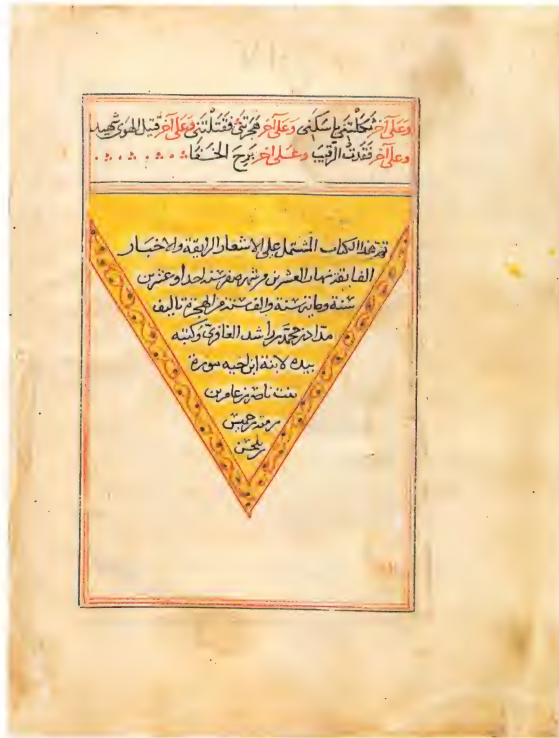 وعلى آخر فهجرتني فقتلتني وعلى آخر قتيل الهوى شهيد
وعلى آخر فقدت الرقيب وعلى آخر برح الخفا
تم هذا الكتاب المشتمل على الاشعار الرايقة والاخبار
الفايقة نهار العشرين من شهر صفر سنة احدا وعشرين
سنة ومايتي سنة والف سنة من الهجرة تاليف
مداد بن محمد بن راشد الغاوي وكتبه
بيده لابنة ابن اخيه سورة
بنت ناصر بن عامر بن
خميس